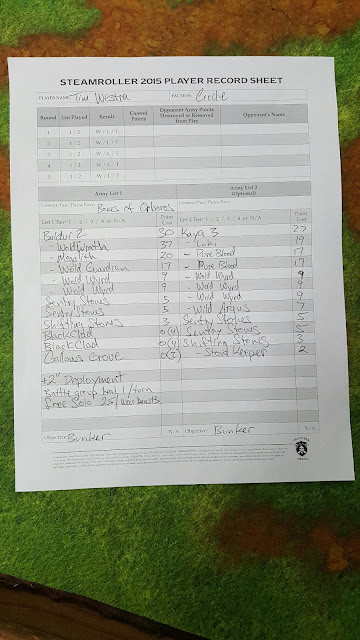 STEAMROLLER 2015 PLAYER RECORD SHEET
PLAYER NAME: Tim Westra FACTION: Circle
Round List Played Result Control Points Opponent Army Points Destroyed or Removed from Play Opponent's Name
1 1 / 2 W / L / T
2 1 / 2 W / L / T
3 1 / 2 W / L / T
4 1 / 2 W / L / T
5 1 / 2 W / L / T
Army List 1 Army List 2 (Optional)
Bones of Orboros
List 1 Tier: 1 / 2 / 3 / 4 or N/A Point Cost List 2 Tier: 1 / 2 / 3 / 4 or N/A Point Cost
Baldur 2 30 Kaya 3 27
- Woldwrath 37 - Loki 19
- Megalith 20 - Pure Blood 17
- Wold Guardian 17 - Pure Blood 17
- Wold Wyrd 9 - Wold Wyrd 9
- Wold Wyrd 9 - Wold Wyrd 9
Sentry Stones 5 - Wold Wyrd 9
Sentry Stones 5 - Wild Argus 7
Shifting Stones 3 Sentry Stones 5
Black Clad 0(4) Sentry Stones 5
Black Clad 0(4) Shifting Stones 3
Gallows Grove 0(2) - Stone Keeper 2
+2" Deployment
Battle group 1 turn
free Solo 25/ warbeasts
Objective: Bunker N/A Objective: Bunker N/A